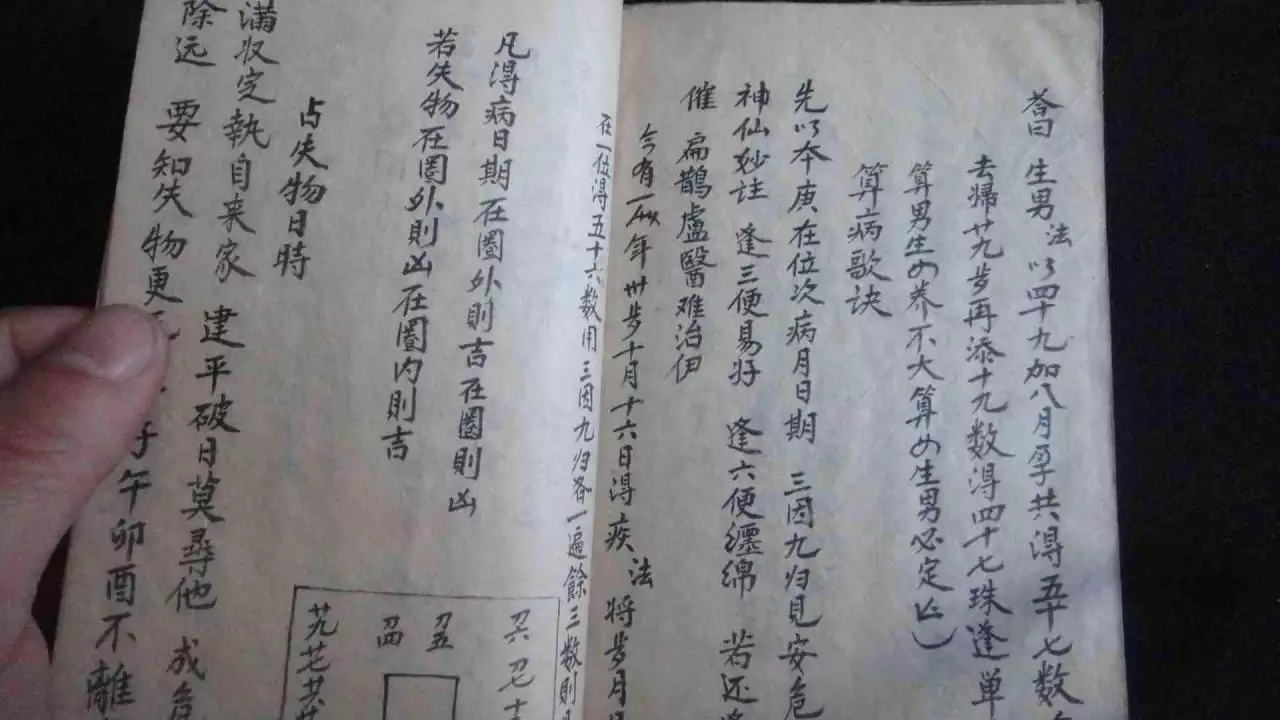 荅曰 生男 法以四十九加八月孕共得五十七数
去帰廿九步再添十九数得四十七珠逢单
算男生女养不大算女生男必定亡
算病歌诀
先以本庚在位次病月日期 三因九归見安危
神仙妙註 逢三便易好 逢六便纒綿 若还逢
催 扁鵲盧醫难治伊
今有一 年卅步十月十六日得疾 法将步月日
在一位得五十六数用三因九归各一遍餘三数則
凡得病日期在圈外則吉在圈則凶
若失物在圈外則凶在圈内則吉
占失物日時
满収定執自来家 建平破日莫尋他 成危
除远 要知失物更 子午卯酉不離
初六 初七
初五
初四
廿九 廿七 廿八